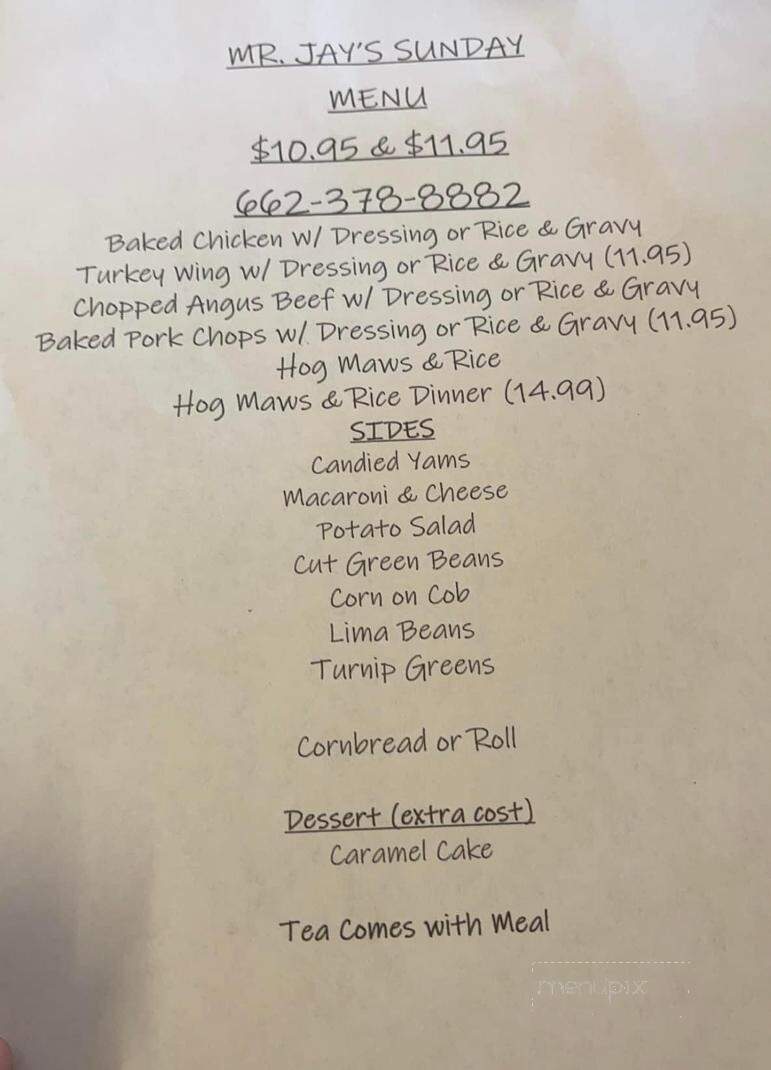 MR. JAY'S SUNDAY
MENU
$10.95 & $11.95
662-378-8882
Baked Chicken w/ Dressing or Rice & Gravy
Turkey Wing w/ Dressing or Rice & Gravy (11.95)
Chopped Angus Beef w/ Dressing or Rice & Gravy
Baked Pork Chops w/ Dressing or Rice & Gravy (11.95)
Hog Maws & Rice
Hog Maws & Rice Dinner (14.99)
SIDES
Candied Yams
Macaroni & Cheese
Potato Salad
Cut Green Beans
Corn on Cob
Lima Beans
Turnip Greens
Cornbread or Roll
Dessert (extra cost)
Caramel Cake
Tea Comes with Meal
menupix